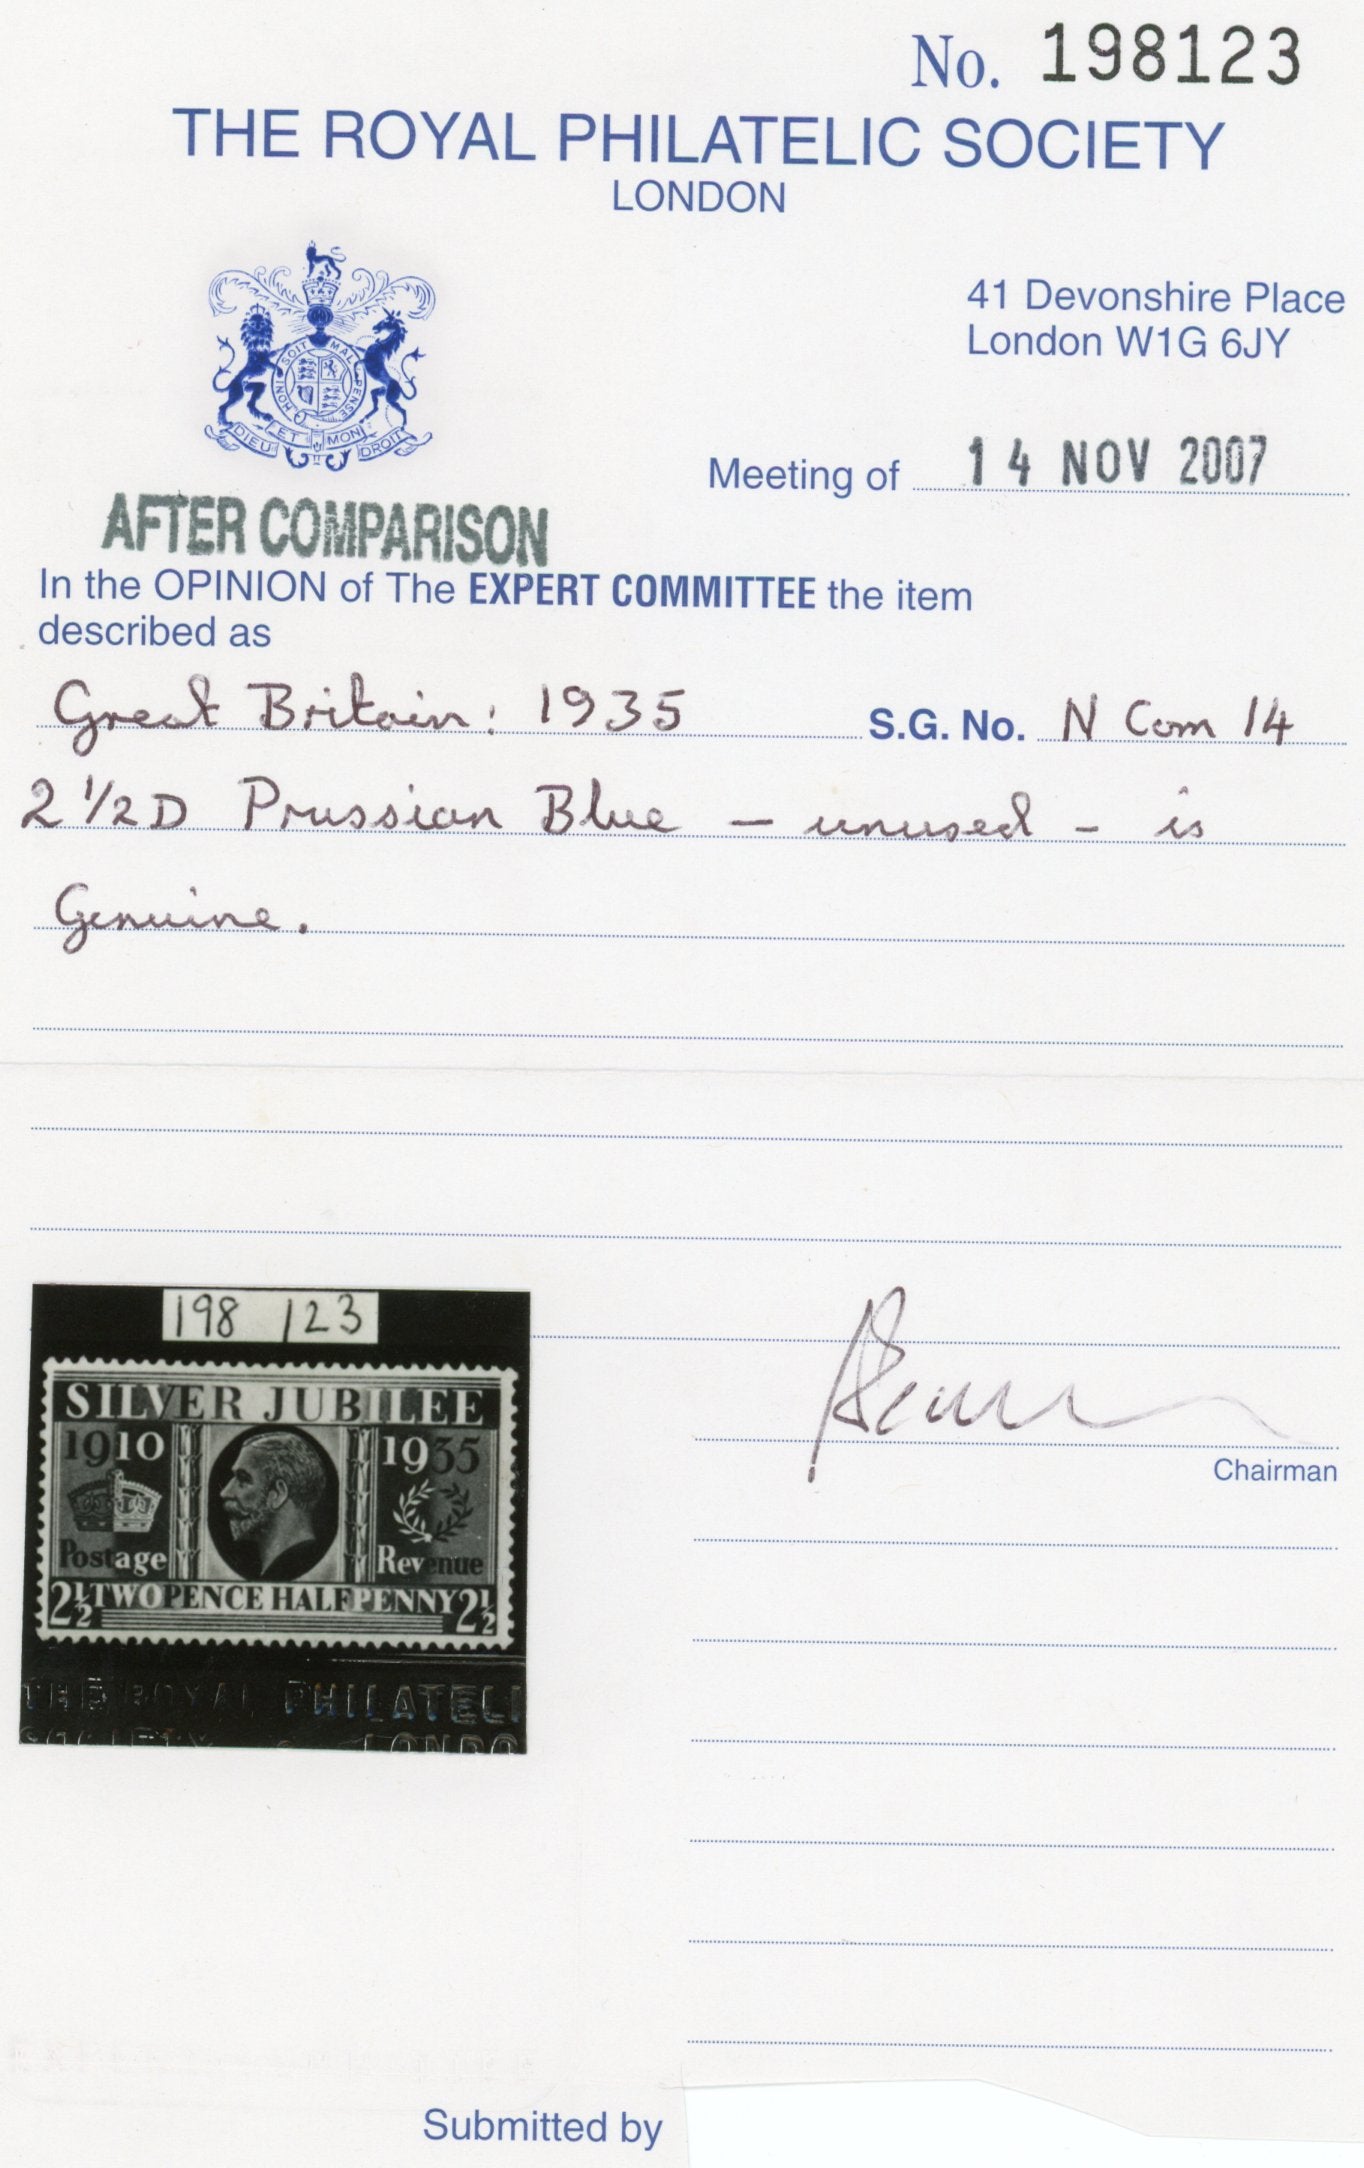 No. 198123
THE ROYAL PHILATELIC SOCIETY
LONDON
HONI SOIT MAL PENSE
DIEU ET MON DROIT
41 Devonshire Place
London W1G 6JY
Meeting of 14 NOV 2007
AFTER COMPARISON
In the OPINION of The EXPERT COMMITTEE the item
described as
Great Britain: 1935 S.G. No. N Com 14
2 1/2D Prussian Blue — unused - is
Genuine.
198 123
SILVER JUBILEE
1910 1935
Postage Revenue
2½ TWOPENCE HALFPENNY 2½
THE ROYAL PHILATELI
SOCIETY LONDO
Chairman
Submitted by